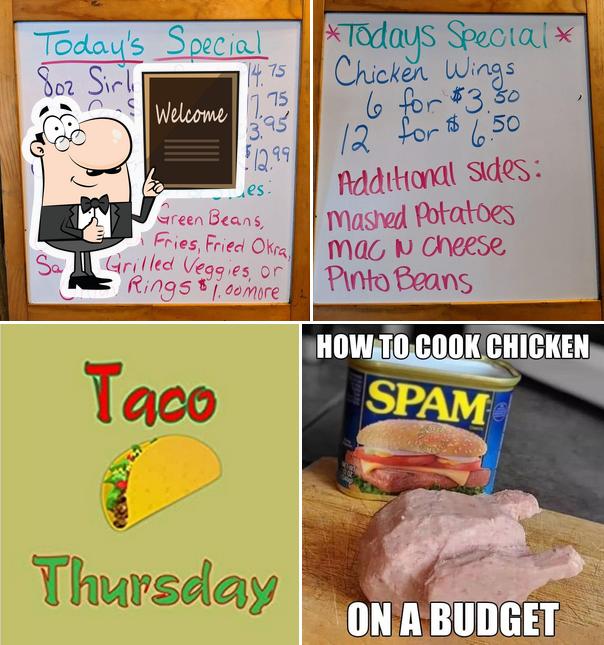 Today's Special
8oz 14.75
7.75
3.95
$12.99
Welcome
Green Beans,
Fries, Fried Okra,
Grilled Veggies, or
Rings $1.00 more
*Todays Special*
Chicken Wings
6 for $3.50
12 for $6.50
Additional sides:
Mashed Potatoes
mac N cheese
Pinto Beans
Taco
Thursday
HOW TO COOK CHICKEN
SPAM
ON A BUDGET